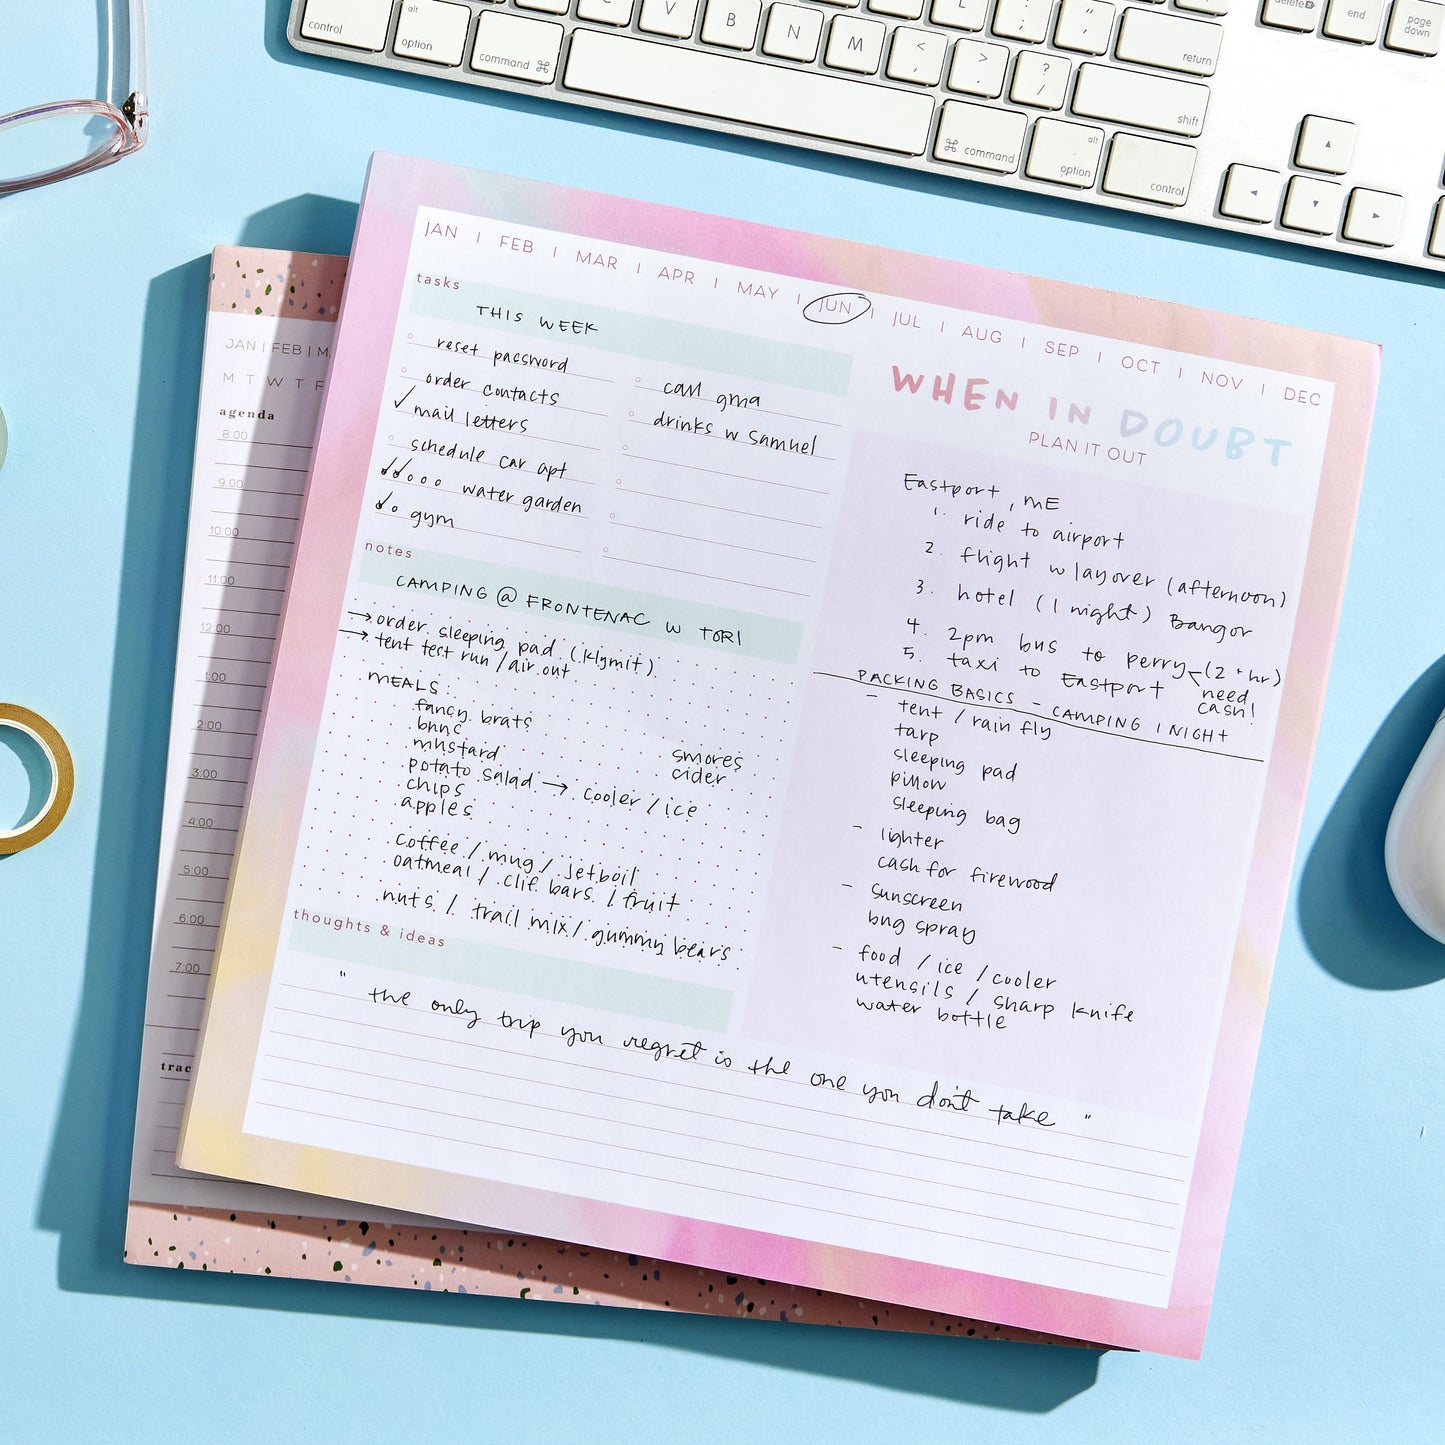 control
alt
option
command ⌘
C
V
B
N
M
<
,
>
.
?
/
L
:
;
"
'
return
shift
⌘ command
alt
option
control
delete
end
page
down
JAN | FEB | MAR | APR | MAY | JUN | JUL | AUG | SEP | OCT | NOV | DEC
tasks
THIS WEEK
reset password
order contacts
✓ mail letters
schedule car apt
✓✓ooo water garden
✓o gym
call gma
drinks w Samuel
notes
CAMPING @ FRONTENAC W TORI
→ order sleeping pad (klymit)
→ tent test run / air out
MEALS:
fancy brats
buns
mustard
potato salad → cooler / ice
chips
apples
smores
cider
coffee / mug / jetboil
oatmeal / clif bars / fruit
nuts / trail mix / gummy bears
thoughts & ideas
" the only trip you regret is the one you don't take "
WHEN IN DOUBT
PLAN IT OUT
Eastport, ME
1. ride to airport
2. flight w layover (afternoon)
3. hotel (1 night) Bangor
4. 2pm bus to perry (2+hr)
need
cash!
5. taxi to Eastport
PACKING BASICS - CAMPING 1 NIGHT
- tent / rain fly
tarp
sleeping pad
pillow
sleeping bag
- lighter
cash for firewood
- sunscreen
bug spray
- food / ice / cooler
utensils / sharp knife
water bottle
JAN | FEB | M
M T W T F
agenda
8:00
9:00
10:00
11:00
12:00
1:00
2:00
3:00
4:00
5:00
6:00
7:00
trac